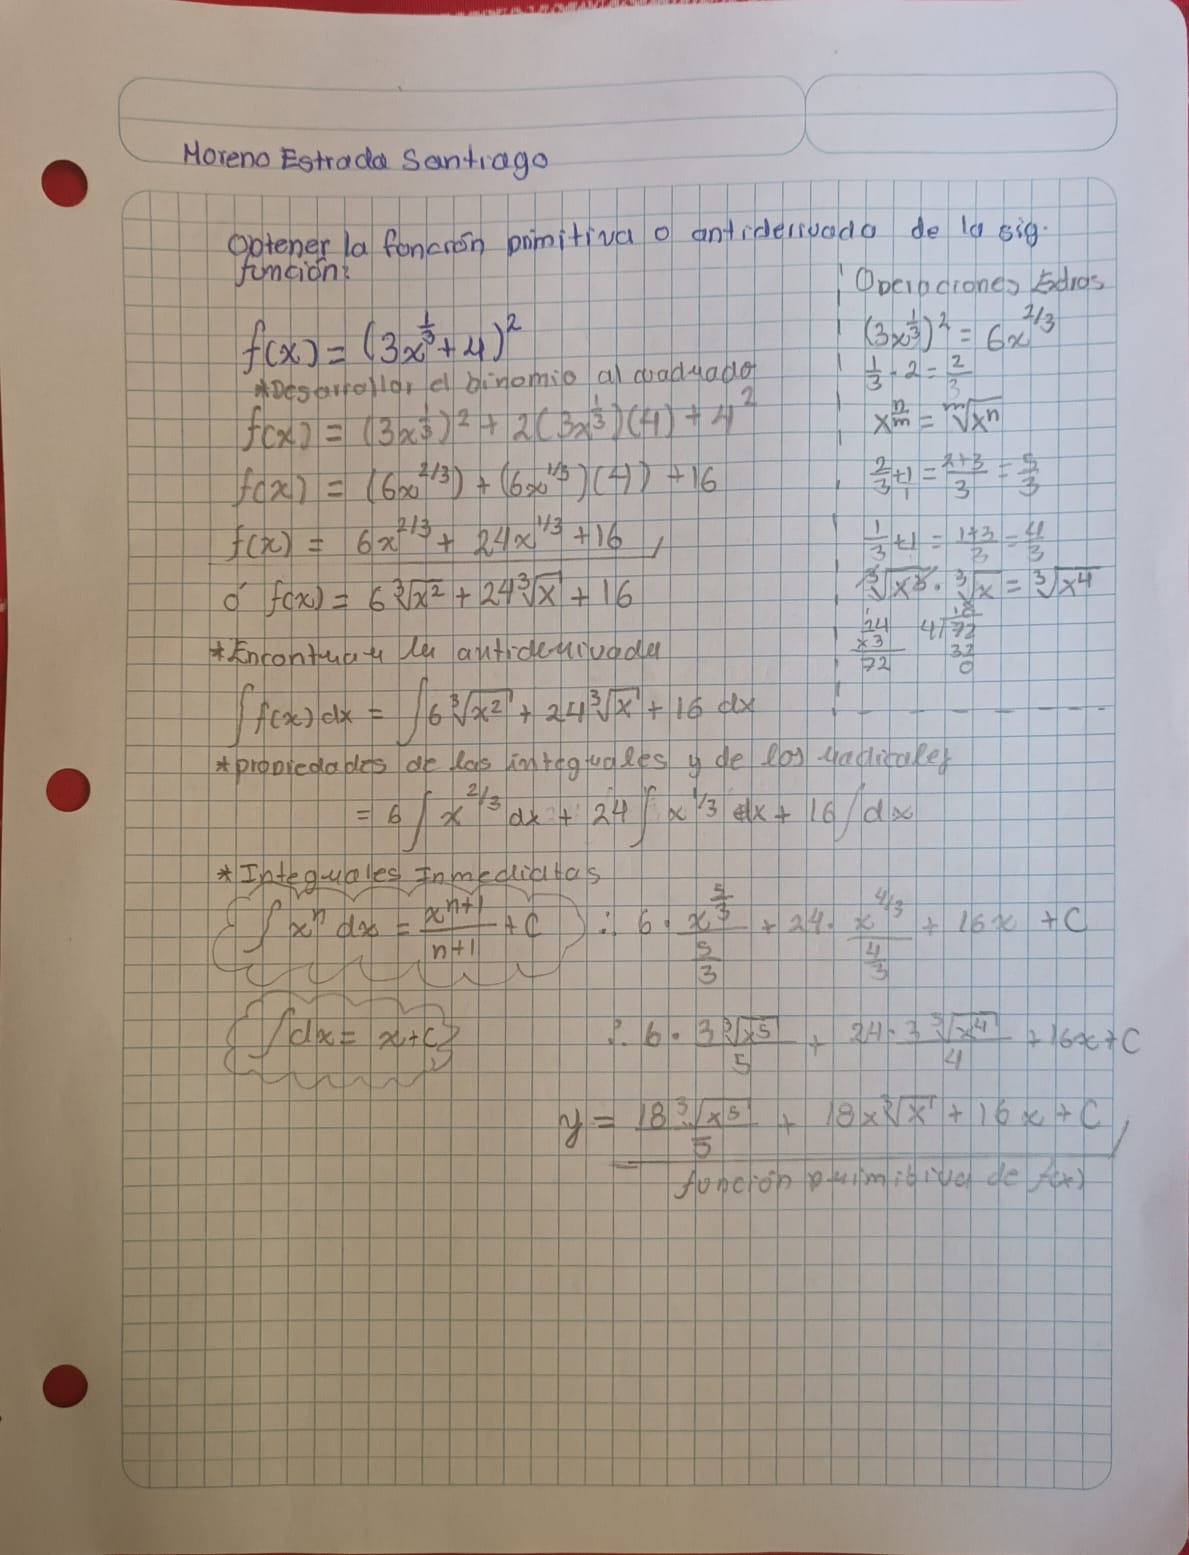 Moreno Estrada Santiago
Obtener la función primitiva o antiderivada de la sig.
función:
f(x) = (3x^{1/3} + 4)^2
*Desarrollar el binomio al cuadrado
f(x) = (3x^{1/3})^2 + 2(3x^{1/3})(4) + 4^2
f(x) = (6x^{2/3}) + (6x^{1/3})(4) + 16
f(x) = 6x^{2/3} + 24x^{1/3} + 16
ó f(x) = 6∛x² + 24∛x + 16
*Encontrar la antiderivada
∫f(x)dx = ∫6∛x² + 24∛x + 16 dx
*propiedades de las integrales y de los radicales
= 6∫x^{2/3} dx + 24∫x^{1/3} dx + 16∫dx
*Integrales Inmediatas
∫x^n dx = x^{n+1}/(n+1) + C ∴ 6 · x^{5/3}/(5/3) + 24 · x^{4/3}/(4/3) + 16x + C
∫dx = x+C ∴ 6 · 3∛x⁵/5 + 24·3∛x⁴/4 + 16x+C
y = 18∛x⁵/5 + 18x∛x + 16x + C
función primitiva de f(x)
Operaciones
(3x^{1/3})^2 = 6x^{2/3}
1/3 · 2 = 2/3
x^{n/m} = ᵐ√xⁿ
2/3 + 1/1 = 2+3/3 = 5/3
1/3 + 1 = 1+3/3 = 4/3
∛x³ · ∛x = ∛x⁴
24 18
x3 4⟌72
72 32
0